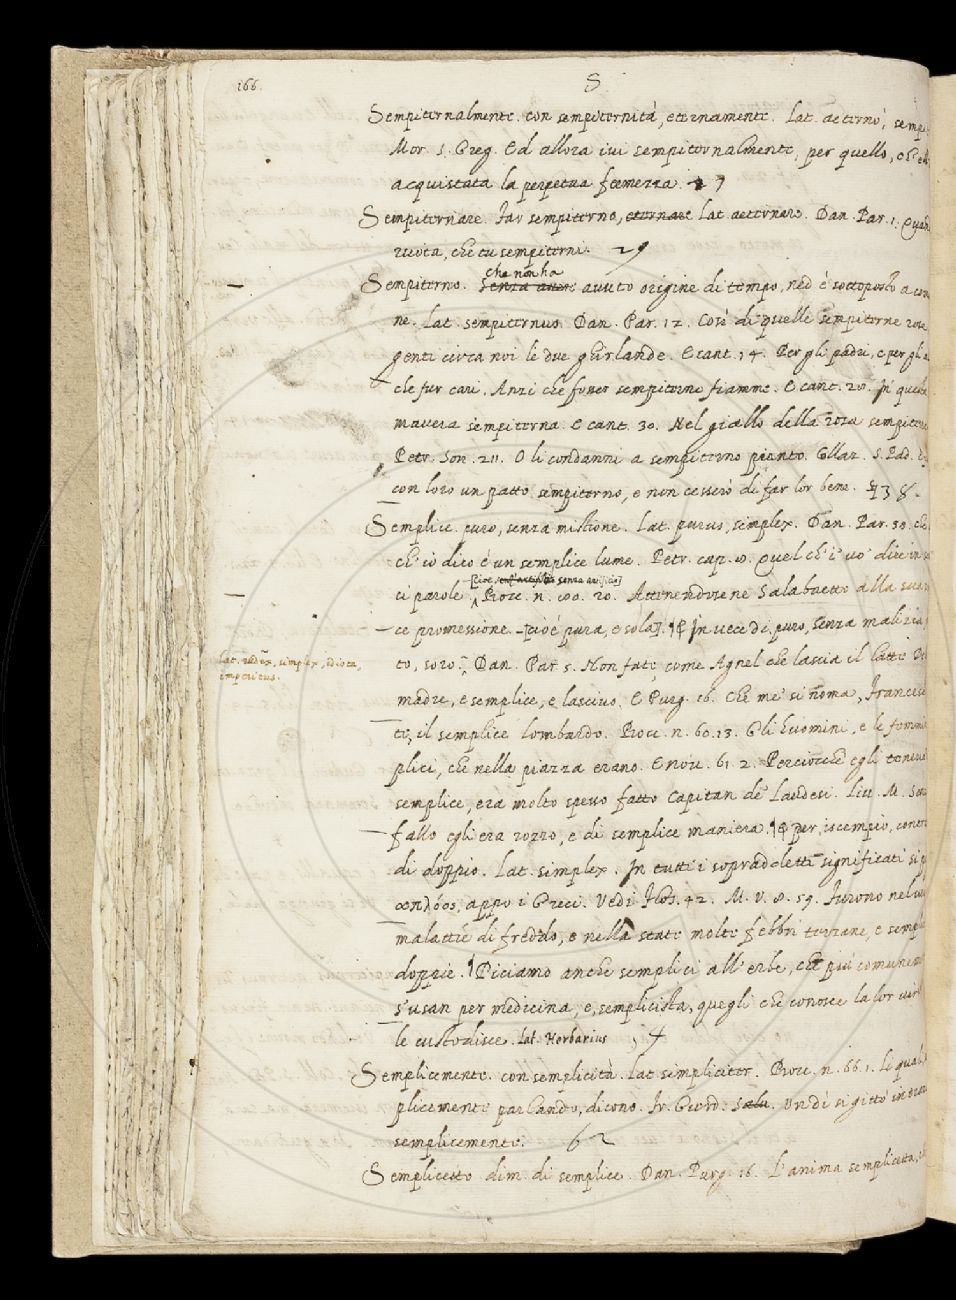 166.
S
Sempiternalmente. con sempiternità, eternamente. Lat. aeternò,
Mor. S. Greg. Ed allora ivi sempiternalmente, per quello, ch'
acquistata la perpetua fermezza. 27
Sempiternare. Far sempiterno, eternare Lat. aeternare. Dan. Par. 1.
ruota, che tu sempiterni. 29
che non ha
Sempiterno. Senza avere avuto origine di tempo, ned è sottoposto a
ne. Lat. sempiternus. Dan. Par. 12. Così di quelle sempiterne rose
genti circa noi le due ghirlande. E cant. 14. Per gli padri, e per gli
che fur cari. Anzi che fosser sempiterne fiamme. E cant. 28. In questa
mavera sempiterna. E cant. 30. Nel giallo della rosa
Petr. Son. 211. O li condanni a sempiterno pianto. Collaz. S. Pad.
con loro un patto sempiterno, e non cesserò di far lor bene. 38.
Semplice. puro, senza mistione. Lat. purus, simplex. Dan. Par. 30.
ch' io dico è un semplice lume. Petr. cap. 8. Quel ch' i' vo' dire in
[cioè, senz'artifizio senza artificio]
ci parole Bocc. n. 80. 20. Attenendosene Salabaetto alla sua
ce promessione. [cioè pura, e sola]. ¶ E In vece di puro, senza malizia,
to, soro. Dan. Par. 5. Non fate, come Agnel che lascia il latte
Lat. rudis, simplex, idiota,
imperitus.
madre, e semplice, e lascivo. E Purg. 16. Che me' si noma, Francesca
te, il semplice Lombardo. Bocc. n. 60. 13. Gli huomini, e le
plici, che nella piazza erano. E nov. 61. 2. Perciocchè egli teneva
semplice, era molto spesso fatto Capitan de' Laudesi. Liv. M.
fallo egli era rozzo, e di semplice maniera. ¶ E per, iscempio,
di doppio. Lat. simplex. In tutti i sopraddetti significati si
appo i Greci. Vedi Flos. 42. M. V. 8. 59. Furono nel
malattie di freddo, e nella state molte febbri terzane, e
doppie. ¶ Diciamo anche semplici all' erbe, che più
s' usan per medicina, e, semplicista, quegli che conosce la lor
le custodisce. Lat. Herbarius
Semplicemente. con semplicità. Lat. simpliciter. Bocc. n. 66. 1. Li
plicemente parlando, dicono. Fr. Giord. Salv. Un dì si gittò in
semplicemente. 62
Semplicetto dim. di semplice. Dan. Purg. 16. L' anima semplicetta,